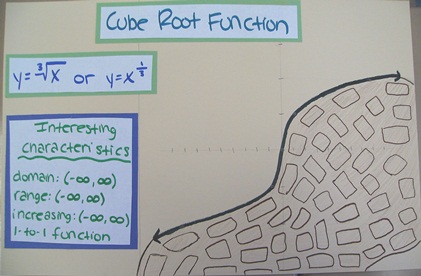 Cube Root Function
y=∛x or y=x^⅓
Interesting
characteristics
domain: (-∞,∞)
range: (-∞,∞)
increasing: (-∞,∞)
1-to-1 function